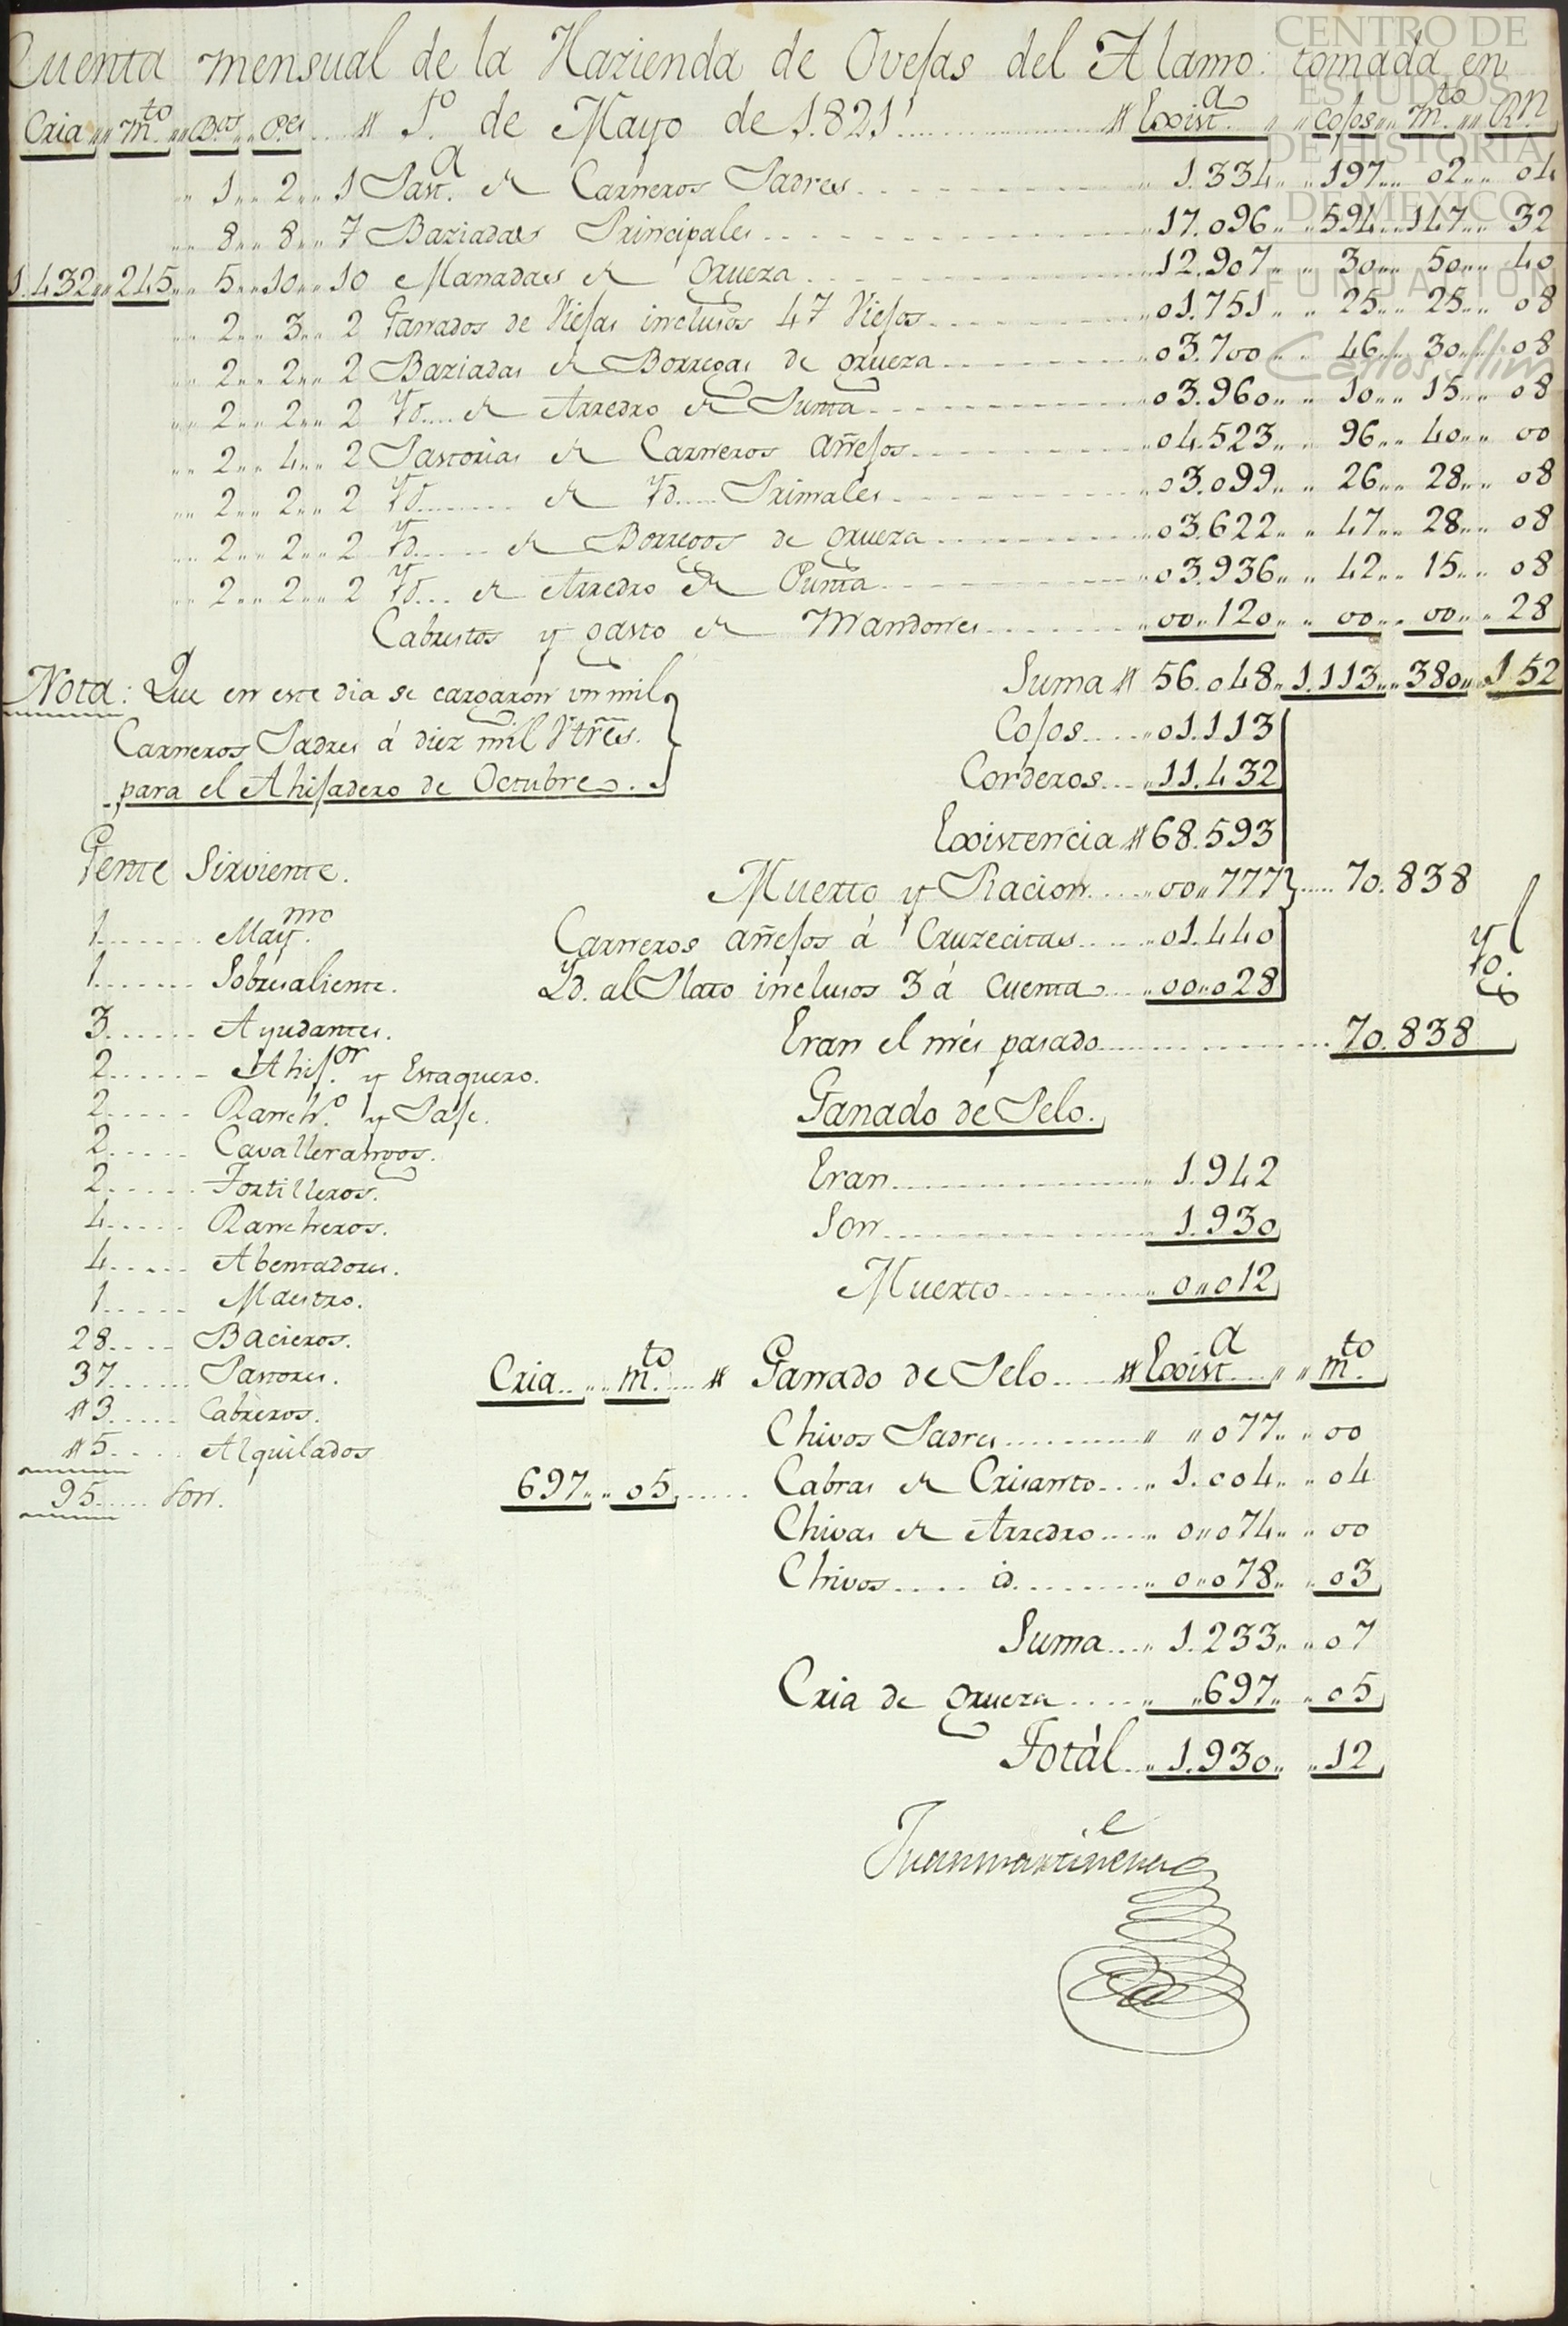 Cuenta mensual de la Hazienda de Ovejas del Alamo: tomada en
Cria,, m.to ,, B.cs ,, P.es // 1.º de Mayo de 1.821 // Exist.a ,, Cojos ,, m.to ,, R.n
1,, 2,, 1 Past.a de Carneros Padres 1.334,, 197,, 02,, 04
8,, 8,, 7 Baziadas Principales 17.096,, 594,, 147,, 32
1.432,, 245,, 5,, 10,, 10 Manadas de grueza 12.907,, 30,, 50,, 40
2,, 3,, 2 Ganados de Viejas inclusos 47 Viejos 01.751,, 25,, 25,, 08
2,, 2,, 2 Baziadas de Borregas de grueza 03.700,, 46,, 30,, 08
2,, 2,, 2 Yd. de Arredro de Punta 03.960,, 10,, 15,, 08
2,, 4,, 2 Pastorias de Carneros añejos 04.523,, 96,, 40,, 00
2,, 2,, 2 Yd. de Yd. Primales 03.099,, 26,, 28,, 08
2,, 2,, 2 Yd. de Borregos de grueza 03.622,, 47,, 28,, 08
2,, 2,, 2 Yd. de Arredro de Punta 03.936,, 42,, 15,, 08
Cabestos y gasto de Mandones 00,,120,, 00,, 00,, 28
Suma // 56.048,, 1.113,, 380,, 152
Nota: Que en este dia se cargarón un mil
Carneros Padres á diez mil Vtres.
para el Ahijadero de Octubre.
Cojos 01.113
Corderos 11.432
Existencia // 68.593
Muerto y Racion 00,,777 70.838
Carneros añejos á Cruzecitas 01.440
Yd. al Plato inclusos 3 á cuenta 00,,028
Yg.l
Eran el més pasado 70.838
Gente Sirviente.
1 May.mo
1 Sobresaliente.
3 Ayudantes.
2 Ahij.or y Estaquero.
2 Ranch.º y Paje.
2 Cavallerangos.
2 Tortilleros.
4 Rancheros.
4 Abentadores.
1 Maestro.
28 Bacieros.
37 Pastores.
//3 Cabreros.
//5 Alquilados
95 Son.
Ganado de Pelo.
Eran 1.942
Son 1.930
Muerto 0,,012
Cria,, m.to // Ganado de Pelo // Exist.a ,, m.to
Chivos Padres ,,077,, 00
697,, 05 Cabras de Crisanto 1.004,, 04
Chivas de Arredro 0,,074,, 00
Chivos id. 0,,078,, 03
Suma 1.233,, 07
Cria de grueza ,,697,, 05
Totál 1.930,, 12
CENTRO DE
ESTUDIOS
DE HISTORIA
DE MEXICO
FUNDACIÓN
Carlos Slim